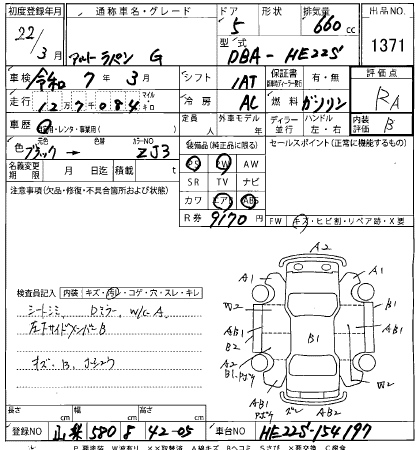 初度登録年月 通称車名・グレード ドア 形状 排気量 出品NO.
22/3月 アルトラパン G 5 660cc 1371
型式 DBA-HE22S
車検 令和 7年 3月 シフト IAT 保証書 有・無 評価点
走行 127084 マイル キロ 冷房 AC 燃料 ガソリン RA
車歴 自家用・レンタ・事業用( ) 定員 人 外車モデル 年 ディーラー 並行 ハンドル 左・右 内装評価 B
色 元色 ブラック → 色替 カラーNO ZJ3 装備品(純正品に限る) セールスポイント(正常に機能するもの)
名義変更期限 月 日迄 積載 t PS PW AW
注意事項(欠品・修復・不具合箇所および状態) SR TV ナビ
カワ エアB ABS
R券 9170円 FW キズ・ヒビ割・リペア跡・X要
A2
A1 A1
W2 A2
AB1 B1 AB1
B2
A2 B1
W2
AB1 AB1
検査員記入 内装 キズ・汚レ・コゲ・穴・スレ・キレ
シートシミ Dミラー W/C A
左下サイドメンバーB
キズ・B
長さ cm 幅 cm 高さ cm
登録NO 山梨 580 る 42-05 車台NO HE22S-154197